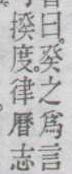 曰。癸之爲言
揆度。律曆志